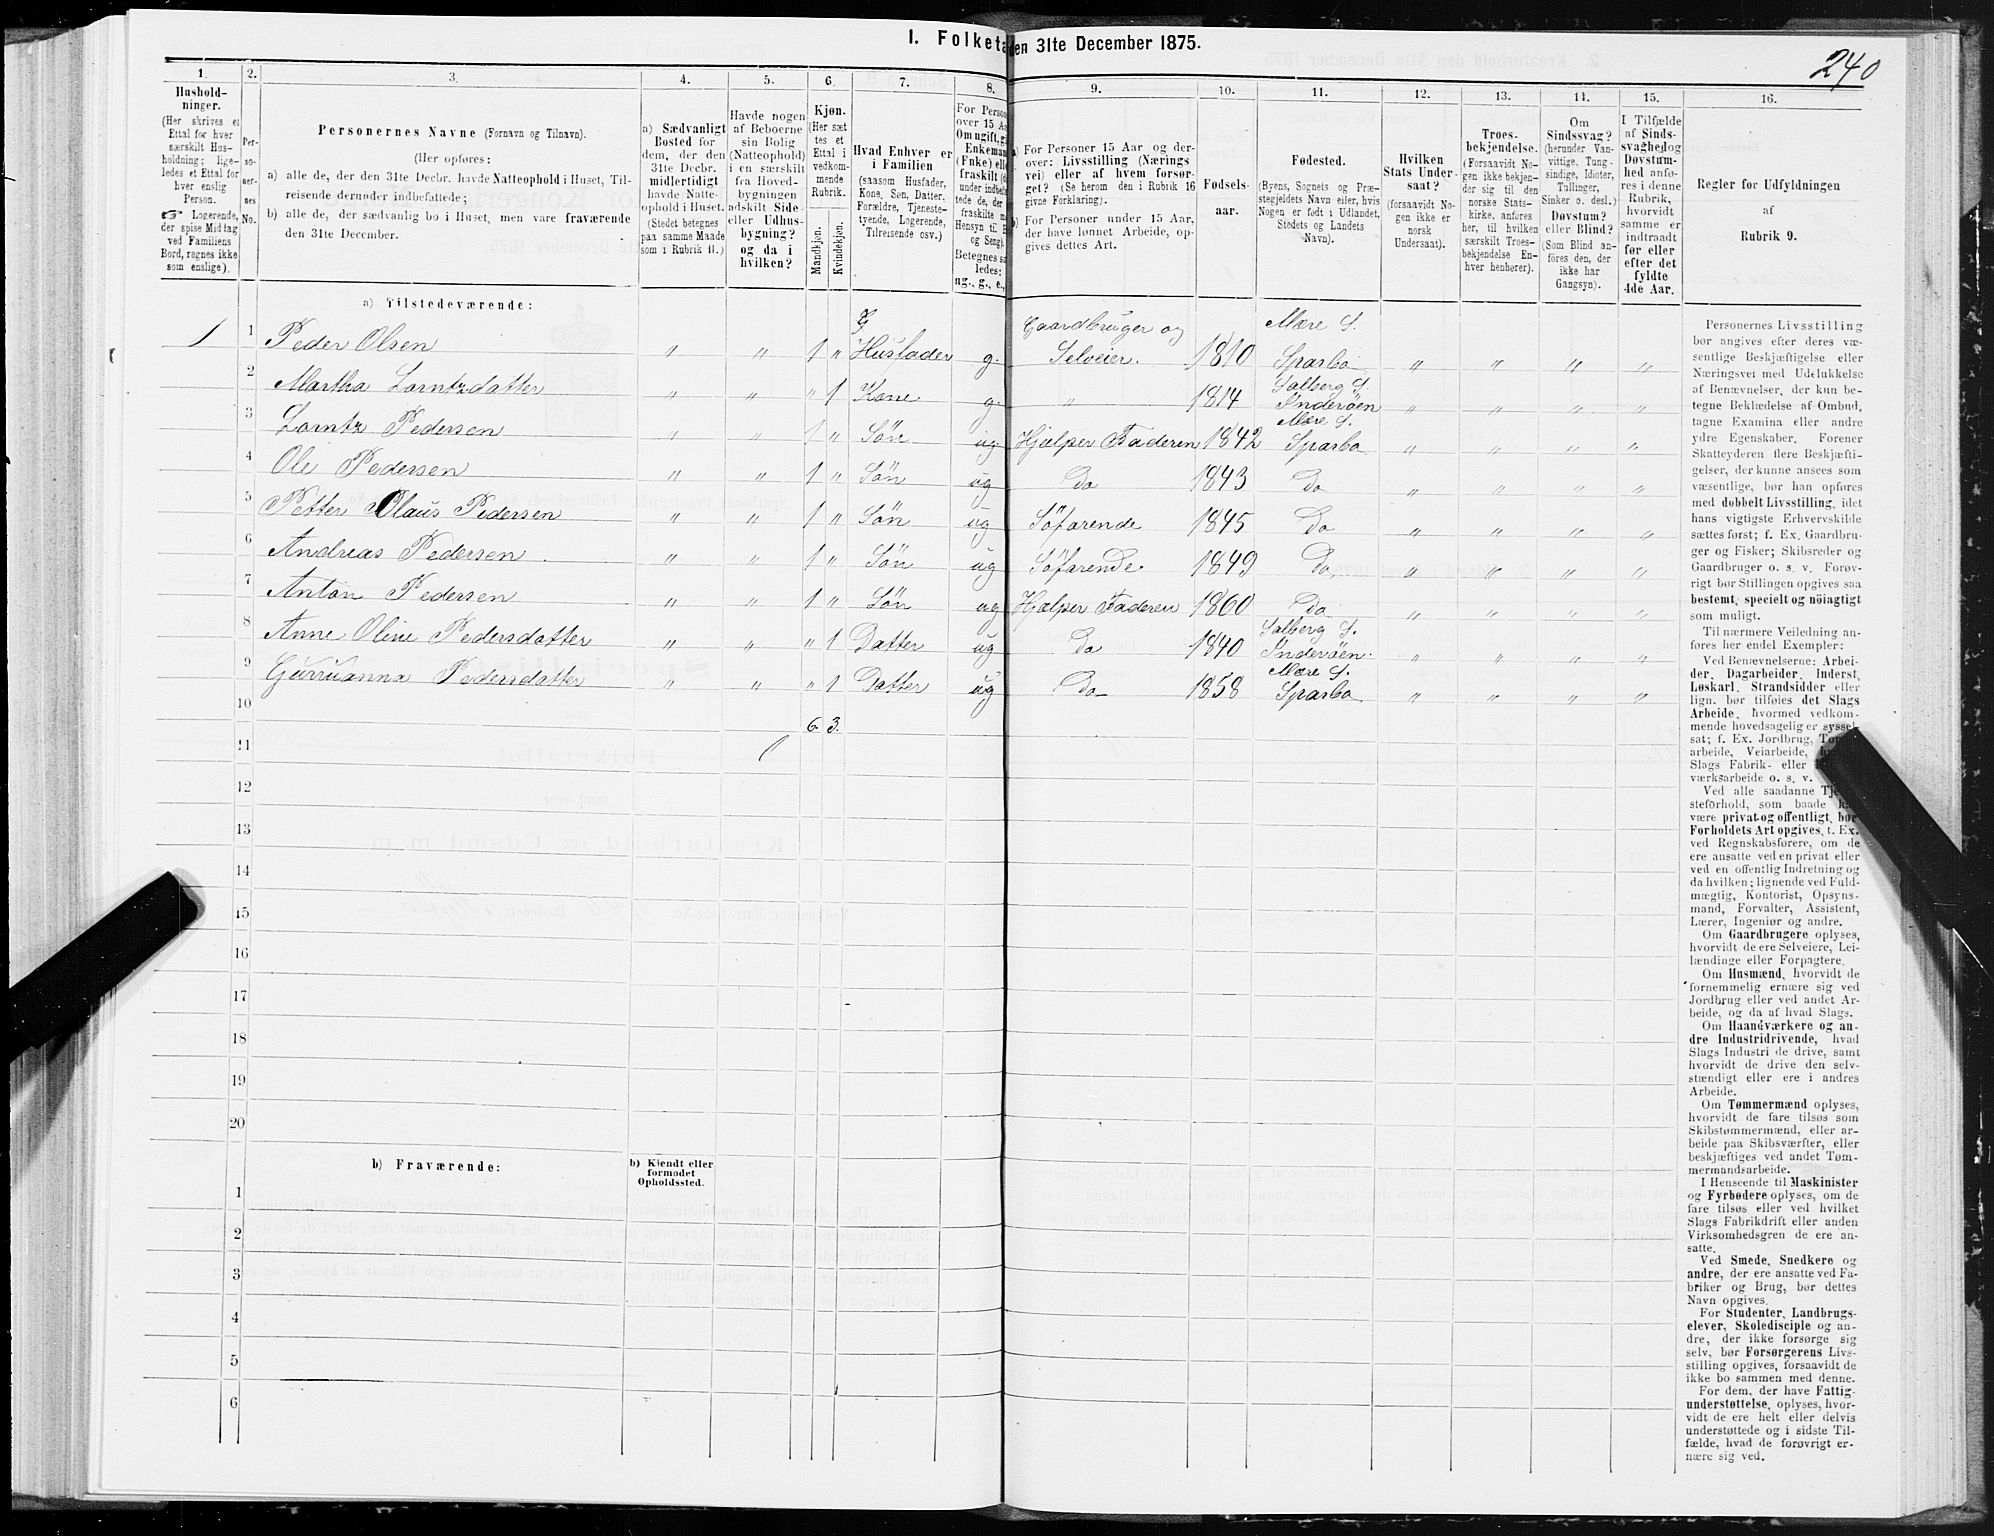 I. Folketa
en 31te December 1875.
240
1.
2.
3.
4.
5.
6.
7.
8.
9.
10.
11.
12.
13.
14.
15.
16.
Hushold-
ninger.
(Her skrives et
Ettal for hver
særskilt Hus-
holdning; lige-
ledes et Ettal for
hver enslig
Person.
☞ Logerende,
der spise Middag
ved Familiens
Bord, regnes ikke
som enslige).
Per-
so-
ner-
nes
No.
Personernes Navne (Fornavn og Tilnavn).
(Her opføres:
a) alle de, der den 31te Decbr. havde Natteophold i Huset, Til-
reisende derunder indbefattede;
b) alle de, der sædvanlig bo i Huset, men vare fraværende
den 31te December.
a) Sædvanligt
Bosted for
dem, der den
31te Decbr.
midlertidigt
havde Natte-
ophold i Huset.
(Stedet betegnes
paa samme Maade
som i Rubrik 11.)
Havde nogen
af Beboerne
sin Bolig
(Natteophold)
i en særskilt
fra Hoved-
bygningen
adskilt Side-
eller Udhus-
bygning?
og da i
hvilken?
Kjøn.
(Her sæt-
tes et
Ettal i
vedkom-
mende
Rubrik.
Mandkjøn.
Kvindekjøn.
Hvad Enhver er
i Familien
(saasom Husfader,
Kone, Søn, Datter,
Forældre, Tjeneste-
tyende, Logerende,
Tilreisende osv.)
For Person
over 15 Aa
Om ugift, g
Enkeman
(Fnke) elle
fraskilt (d
under indbefa
tede de, der
fraskilte m
Hensyn til B
og Seng).
Betegnes sa
ledes:
ug., g., e.,
a) For Personer 15 Aar og der-
over: Livsstilling (Nærings
vei) eller af hvem forsør-
get? (Se herom den i Rubrik 16
givne Forklaring).
b) For Personer under 15 Aar,
der have lønnet Arbeide, op-
gives dettes Art.
Fødsels-
aar.
Fødested.
(Byens, Sognets og Præ-
stegjeldets Navn eller, hvis
Nogen er født i Udlandet,
Stedets og Landets
Navn).
Hvilken
Stats Under-
saat?
(forsaavidt No-
gen ikke er
norsk
Undersaat).
Troes-
bekjendelse.
(Forsaavidt No-
gen ikke bekjen-
der sig til den
norske Stats-
kirke, anføres
her, til hvilken
særskilt Troes-
bekjendelse En-
hver henhører).
Om
Sindssvag?
(herunder Van-
vittige, Tung-
sindige, Idioter,
Tullinger,
Sinker o. desl.)
Døvstum?
eller Blind?
(Som Blind an-
føres den, der
ikke har
Gangsyn).
I Tilfælde
af Sinds-
svaghed og
Døvstum-
hed anfø-
res i denne
Rubrik,
hvorvidt
samme er
indtraadt
før eller
efter det
fyldte
4de Aar.
Regler for Udfyldningen
af
Rubrik 9.
a) Tilstedeværende:
1 1 Peder Olsen „ „ 1 „ Husfader g. Gaardbruger og Selveier. 1810 Mære S. Sparbo „ „ „ „
2 Martha Lorntzdatter „ „ „ 1 Kone g. „ 1814 Salberg S. Inderöen „ „ „ „
3 Lorntz Pedersen „ „ 1 „ Sön ug Hjælper Faderen 1842 Mære S. Sparbo „ „ „ „
4 Ole Pedersen „ „ 1 „ Sön ug Do 1843 Do „ „ „ „
5 Petter Olaus Pedersen „ „ 1 „ Sön ug Söfarende 1845 Do „ „ „ „
6 Andreas Pedersen „ „ 1 „ Sön ug Söfarende. 1849 Do „ „ „ „
7 Anton Pedersen „ „ 1 „ Sön ug Hjælper Faderen 1860 Do „ „ „ „
8 Anne Oline Pedersdatter „ „ „ 1 Datter ug Do 1840 Salberg S. Inderöen. „ „ „ „
9 Gurruanna Pedersdatter „ „ „ 1 Datter ug Do 1858 Mære S. Sparbo „ „ „ „
10
6 3.
11
12
13
14
15
16
17
18
19
20
b) Fraværende:
b) Kjendt eller
formodet
Opholdssted.
1
2
3
4
5
6
Personernes Livsstilling
bør angives efter deres væ-
sentlige Beskjæftigelse eller
Næringsvei med Udelukkelse
af Benævnelser, der kun be-
tegne Beklædelse af Ombud,
tagne Examina eller andre
ydre Egenskaber. Forener
Skatteyderen flere Beskjæfti-
gelser, der kunne ansees som
væsentlige, bør han opføres
med dobbelt Livsstilling, idet
hans vigtigste Erhvervskilde
sættes først; f. Ex. Gaardbru-
ger og Fisker; Skibsreder og
Gaardbruger o. s. v. Forøv-
rigt bør Stillingen opgives saa
bestemt, specielt og nöiagtigt
som muligt.
Til nærmere Veiledning an-
føres her endel Exempler:
Ved Benævnelserne: Arbei-
der, Dagarbeider, Inderst,
Løskarl, Strandsidder eller
lign. bør tilføies det Slags
Arbeide, hvormed vedkom-
mende hovedsagelig er syssel-
sat; f. Ex. Jordbrug,
arbeide, Veiarbeide,
Slags Fabrik- eller
værksarbeide o. s. v.
Ved alle saadanne Tje
steforhold, som baade k
være privat og offentligt, bør
Forholdets Art opgives, t. Ex.
ved Regnskabsførere, om de
ere ansatte ved en privat eller
ved en offentlig Indretning og
da hvilken; lignende ved Fuld-
mægtig, Kontorist, Opsyns-
mand, Forvalter, Assistent,
Lærer, Ingeniør og andre.
Om Gaardbrugere oplyses,
hvorvidt de ere Selveiere, Lei-
lændinge eller Forpagtere.
Om Husmænd, hvorvidt de
fornemmelig ernære sig ved
Jordbrug eller ved andet Ar-
beide, og da af hvad Slags.
Om Haandværkere og an-
dre Industridrivende, hvad
Slags Industri de drive, samt
hvorvidt de drive den selv-
stændigt eller ere i andres
Arbeide.
Om Tømmermænd oplyses,
hvorvidt de fare tilsøs som
Skibstømmermænd, eller ar-
beide paa Skibsværfter, eller
beskjæftiges ved andet Tøm-
mermandsarbeide.
I Henseende til Maskinister
og Fyrbødere oplyses, om de
fare tilsøs eller ved hvilket
Slags Fabrikdrift eller anden
Virksomhedsgren de ere an-
satte.
Ved Smede, Snedkere og
andre, der ere ansatte ved Fa-
briker og Brug, bør dettes
Navn opgives.
For Studenter, Landbrugs-
elever, Skoledisciple og an-
dre, der ikke forsørge sig
selv, bør Forsørgerens Livs-
stilling opgives, forsaavidt de
ikke bo sammen med denne.
For dem, der have Fattig-
understøttelse, oplyses, hvor-
vidt de ere helt eller delvis
understøttede og i sidste Til-
fælde, hvad de forøvrigt er-
nære sig ved.